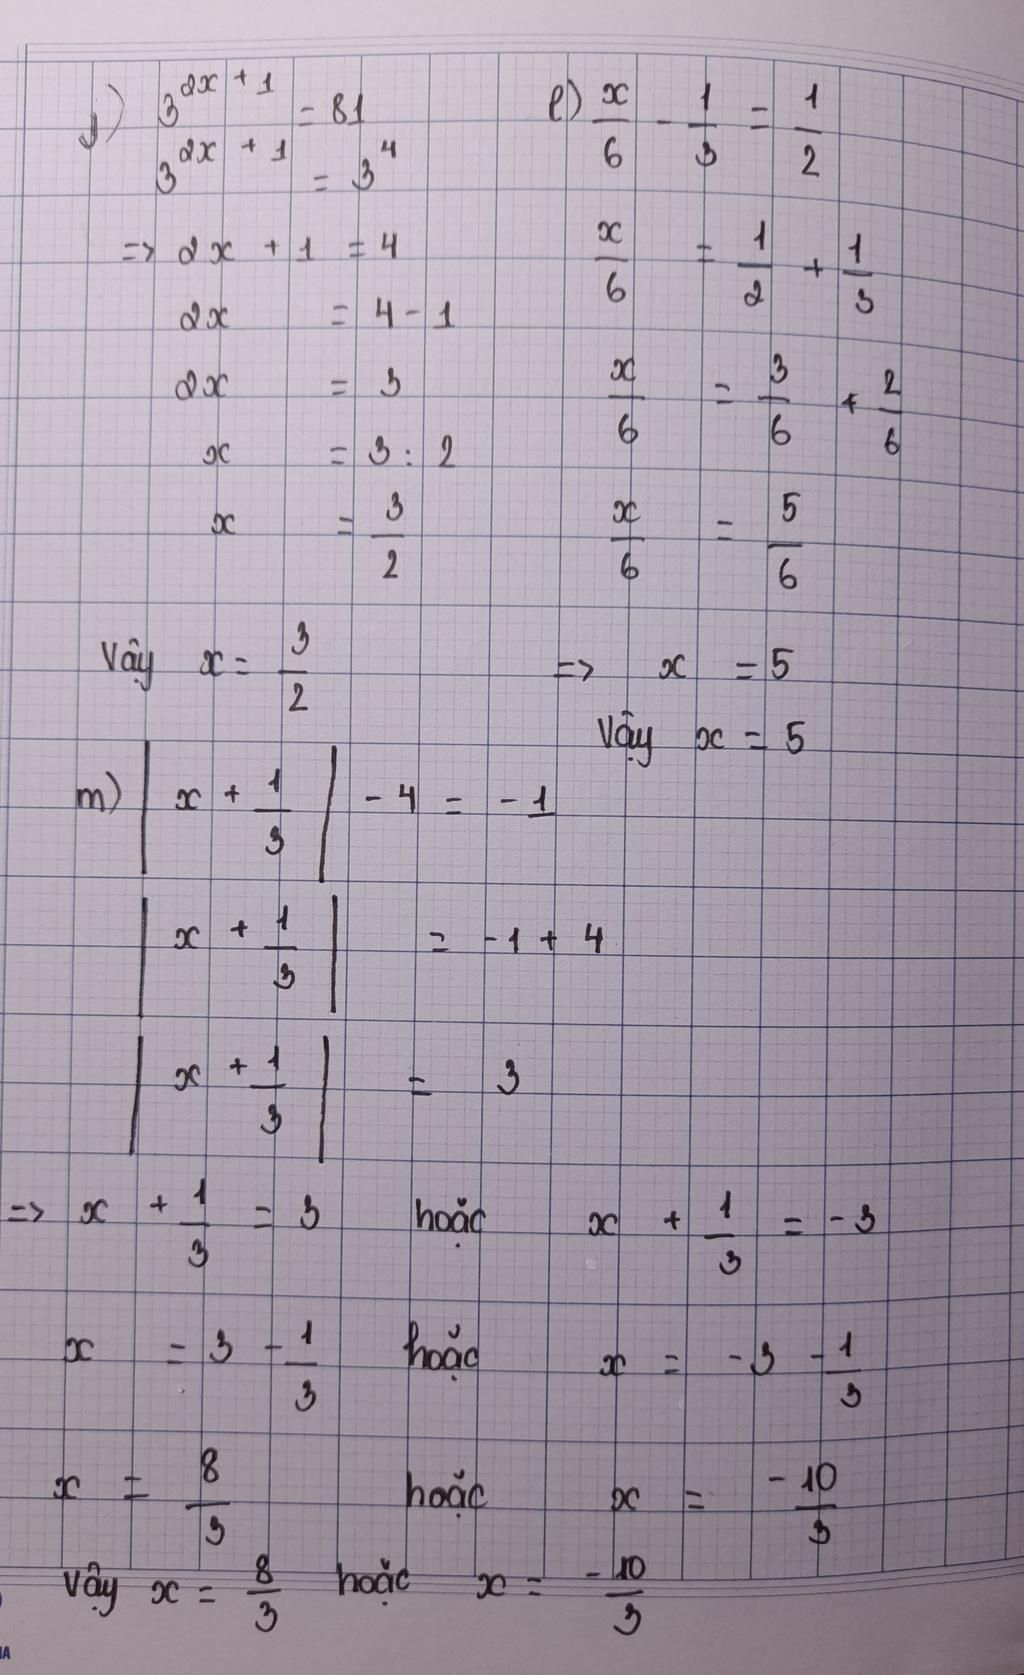 j) 3^{2x + 1} = 81
3^{2x + 1} = 3^4
=> 2x + 1 = 4
2x = 4 - 1
2x = 3
x = 3 : 2
x = 3/2
Vậy x = 3/2
l) x/6 - 1/3 = 1/2
x/6 = 1/2 + 1/3
x/6 = 3/6 + 2/6
x/6 = 5/6
=> x = 5
Vậy x = 5
m) | x + 1/3 | - 4 = - 1
| x + 1/3 | = - 1 + 4
| x + 1/3 | = 3
=> x + 1/3 = 3 hoặc x + 1/3 = - 3
x = 3 - 1/3 hoặc x = - 3 - 1/3
x = 8/3 hoặc x = - 10/3
Vậy x = 8/3 hoặc x = - 10/3